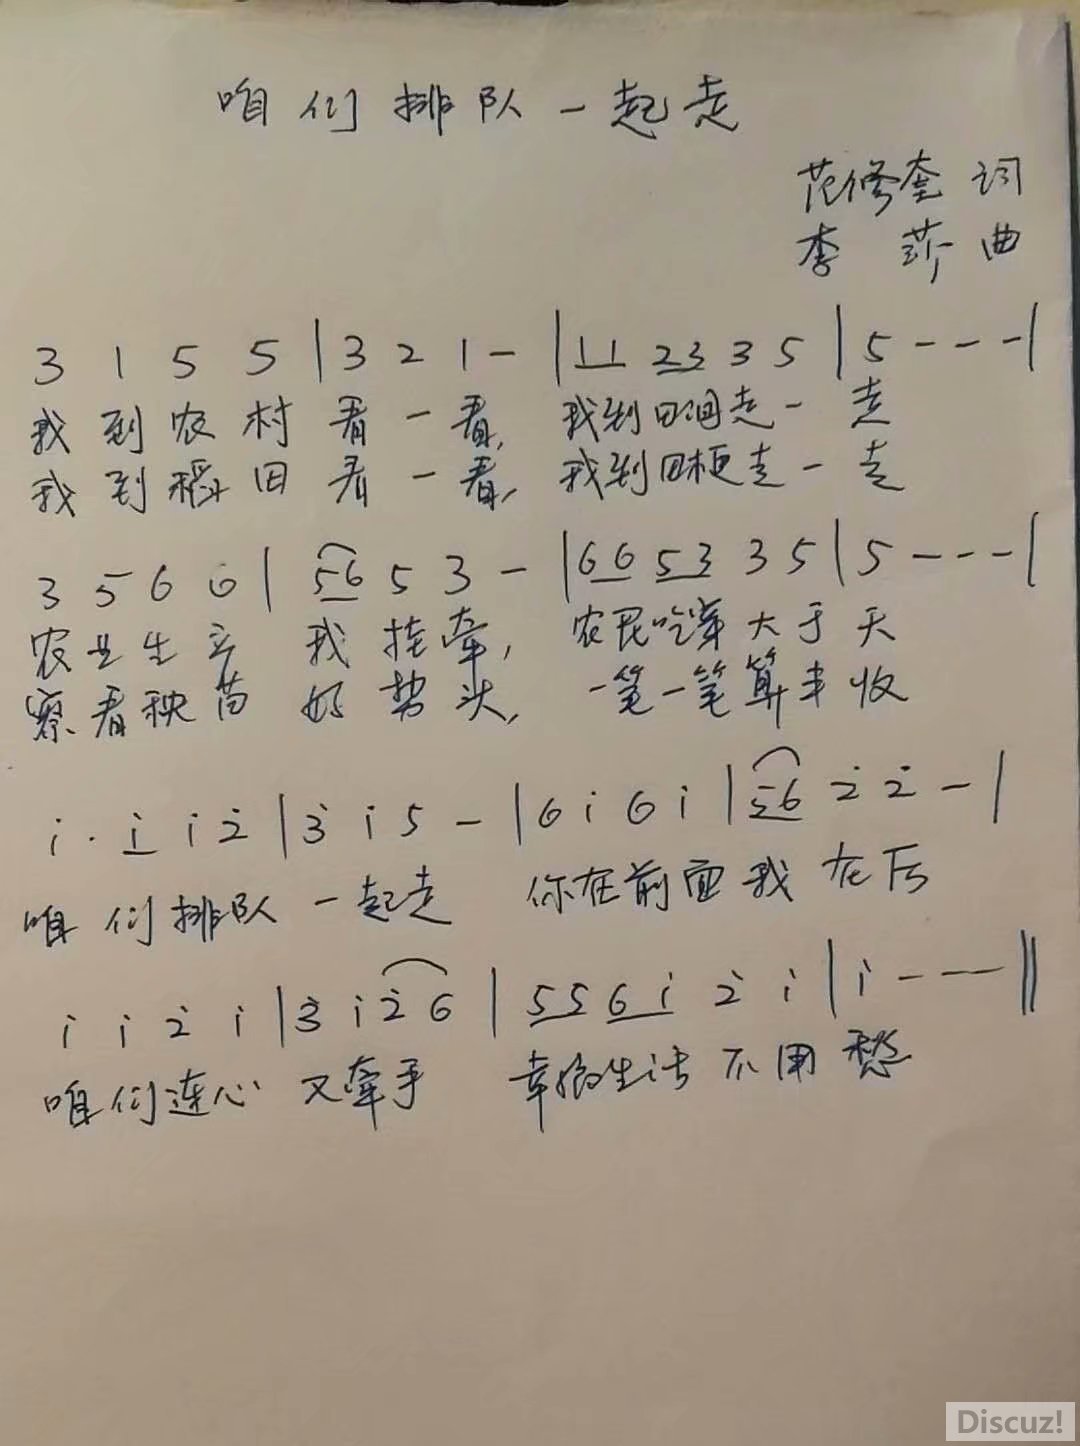 咱们排队一起走
范修奎 词
李 莎 曲
3 1 5 5 | 3 2 1 - | 11 23 3 5 | 5 - - - |
我到农村看一看,我到田间走一走
我到稻田看一看,我到田梗走一走
3 5 6 6 | 56 5 3 - | 66 53 3 5 | 5 - - - |
农业生产 我挂牵,农民吃穿大于天
察看秧苗 好势头,一笔一笔算丰收
i · i i 2̇ | 3̇ i 5 - | 6 i 6 i | 56 2̇ 2̇ - |
咱们排队一起走 你在前面我在后
i i 2̇ i | 3̇ i 2̇ 6 | 55 6i 2̇ i | i - - - ‖
咱们连心 又牵手 幸福生活不用愁
Discuz!